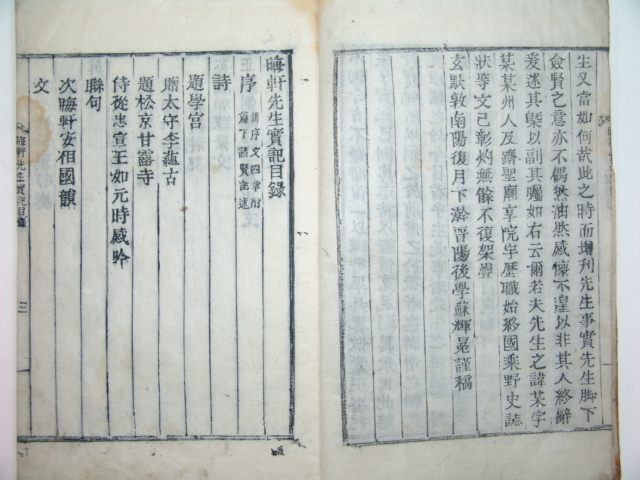 生又當如何哉此之時而增刊先生事實先生脚下
僉賢之意亦不偶然油然感懷不湟以非其人終辭
爰述其槩以副其囑如右云爾若夫先生之諱某字
某某州人及躋聖廟享院字歷職始終國乘野史誌
狀等文已彰灼無餘不復架疊
玄默敦南陽復月下澣晋陽後學蘇輝冕謹稿
晦軒先生實記目錄
序 舊序文四章附篇下諸賢記述
詩
題學宮
贈太守李蘊古
題松京甘露寺
侍從忠宣王如元時感吟
聯句
次晦軒安相國韻
文
晦軒先生實記目錄 三